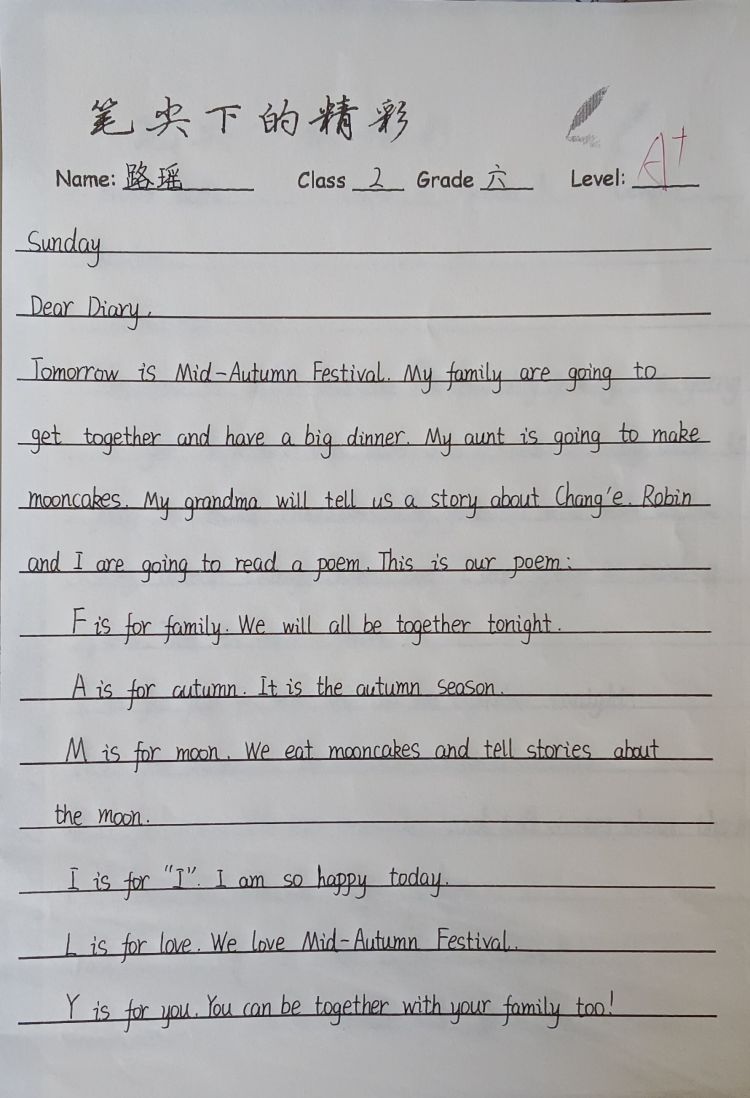 笔尖下的精彩
Name: 路瑶 Class 2 Grade 六 Level: A+
Sunday
Dear Diary,
Tomorrow is Mid-Autumn Festival. My family are going to
get together and have a big dinner. My aunt is going to make
mooncakes. My grandma will tell us a story about Chang'e. Robin
and I are going to read a poem. This is our poem:
F is for family. We will all be together tonight.
A is for autumn. It is the autumn season.
M is for moon. We eat mooncakes and tell stories about
the moon.
I is for "I". I am so happy today.
L is for love. We love Mid-Autumn Festival.
Y is for you. You can be together with your family too!